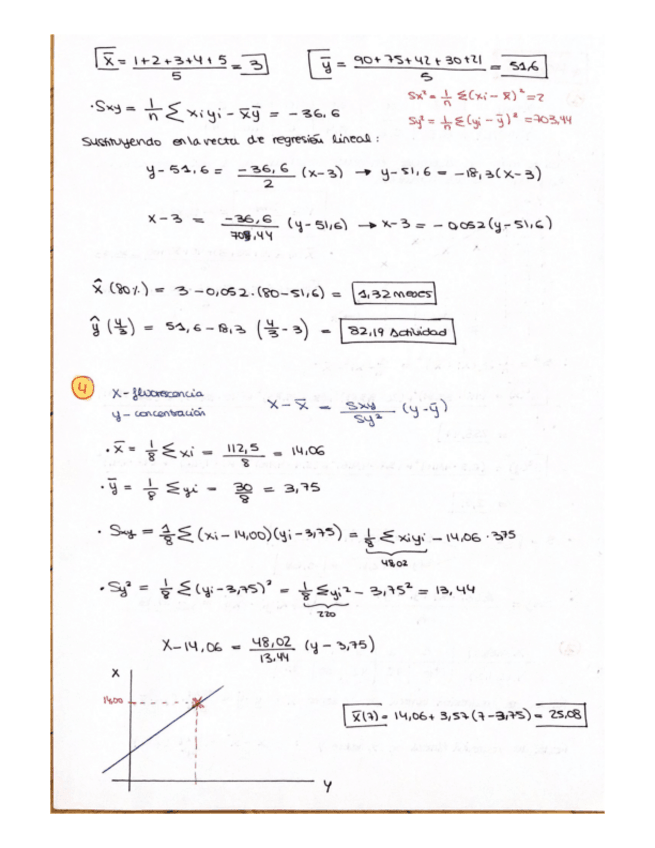 x̄ = 1+2+3+4+5 / 5 = 3    ȳ = 90+75+42+30+21 / 5 = 51,6
Sx² = 1/n Σ(xi - x̄)² = 2
·Sxy = 1/n Σ xiyi - x̄ȳ = -36,6
Sy² = 1/n Σ(yi - ȳ)² = 703,44
Sustituyendo en la recta de regresión lineal:
y - 51,6 = -36,6 / 2 (x-3) → y-51,6 = -18,3(x-3)
x - 3 = -36,6 / 703,44 (y-51,6) → x-3 = -0,052(y-51,6)
x̂ (80%) = 3-0,052·(80-51,6) = 1,32 meses
ŷ (4/3) = 51,6-18,3 (4/3 - 3) = 82,19 Actividad
4
x - fluorescencia
y - concentración
x - x̄ = Sxy / Sy² (y-ȳ)
· x̄ = 1/8 Σxi = 112,5 / 8 = 14,06
· ȳ = 1/8 Σyi = 30/8 = 3,75
· Sxy = 1/8 Σ(xi-14,00)(yi-3,75) = 1/8 Σxiyi - 14,06 · 3,75
4802
· Sy² = 1/8 Σ(yi-3,75)² = 1/8 Σyi² - 3,75² = 13,44
220
x-14,06 = 48,02 / 13,44 (y-3,75)
x
x̄(7) = 14,06+3,57(7-3,75) = 25,08
y